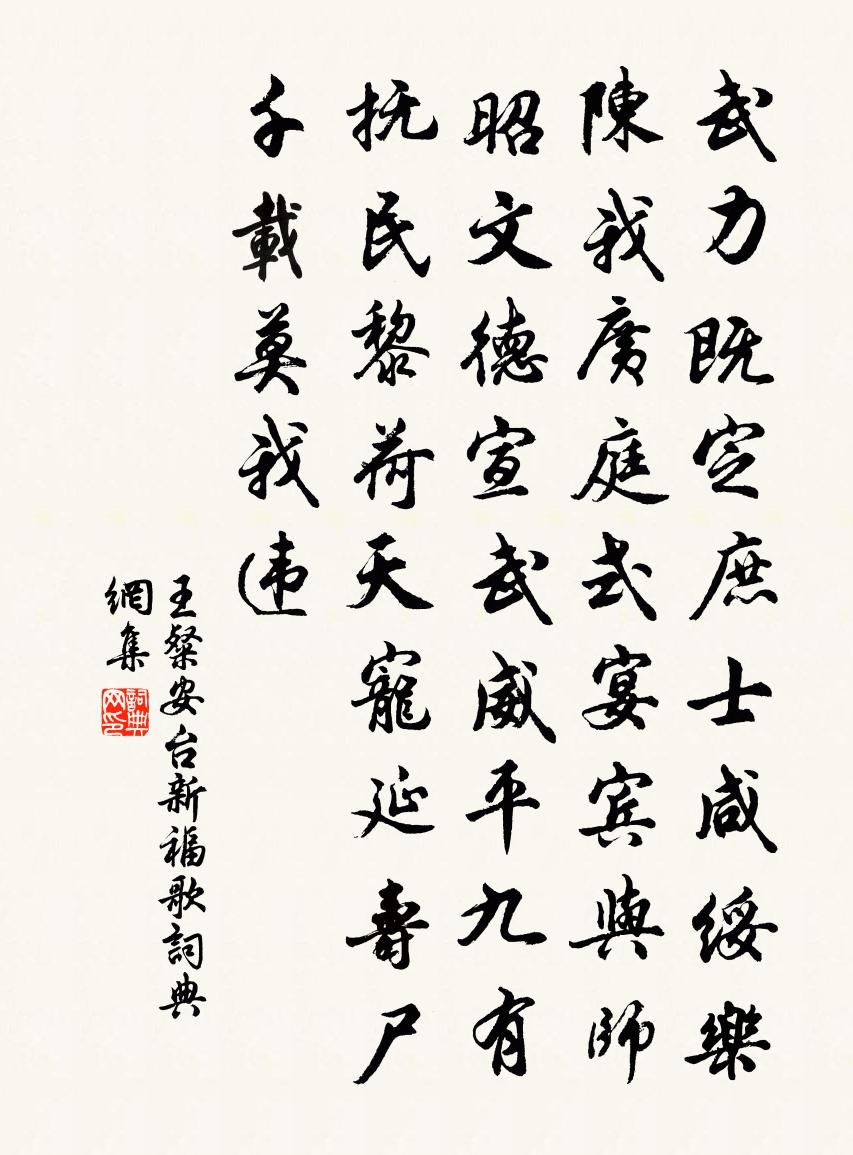 武力既定庶士咸綏樂
陳我廣庭式宴賓與師
昭文德宣武威平九有
抚民黎荷天寵延壽尸
千載莫我违
王粲安台新福歌詞典
網集
詞典
网印